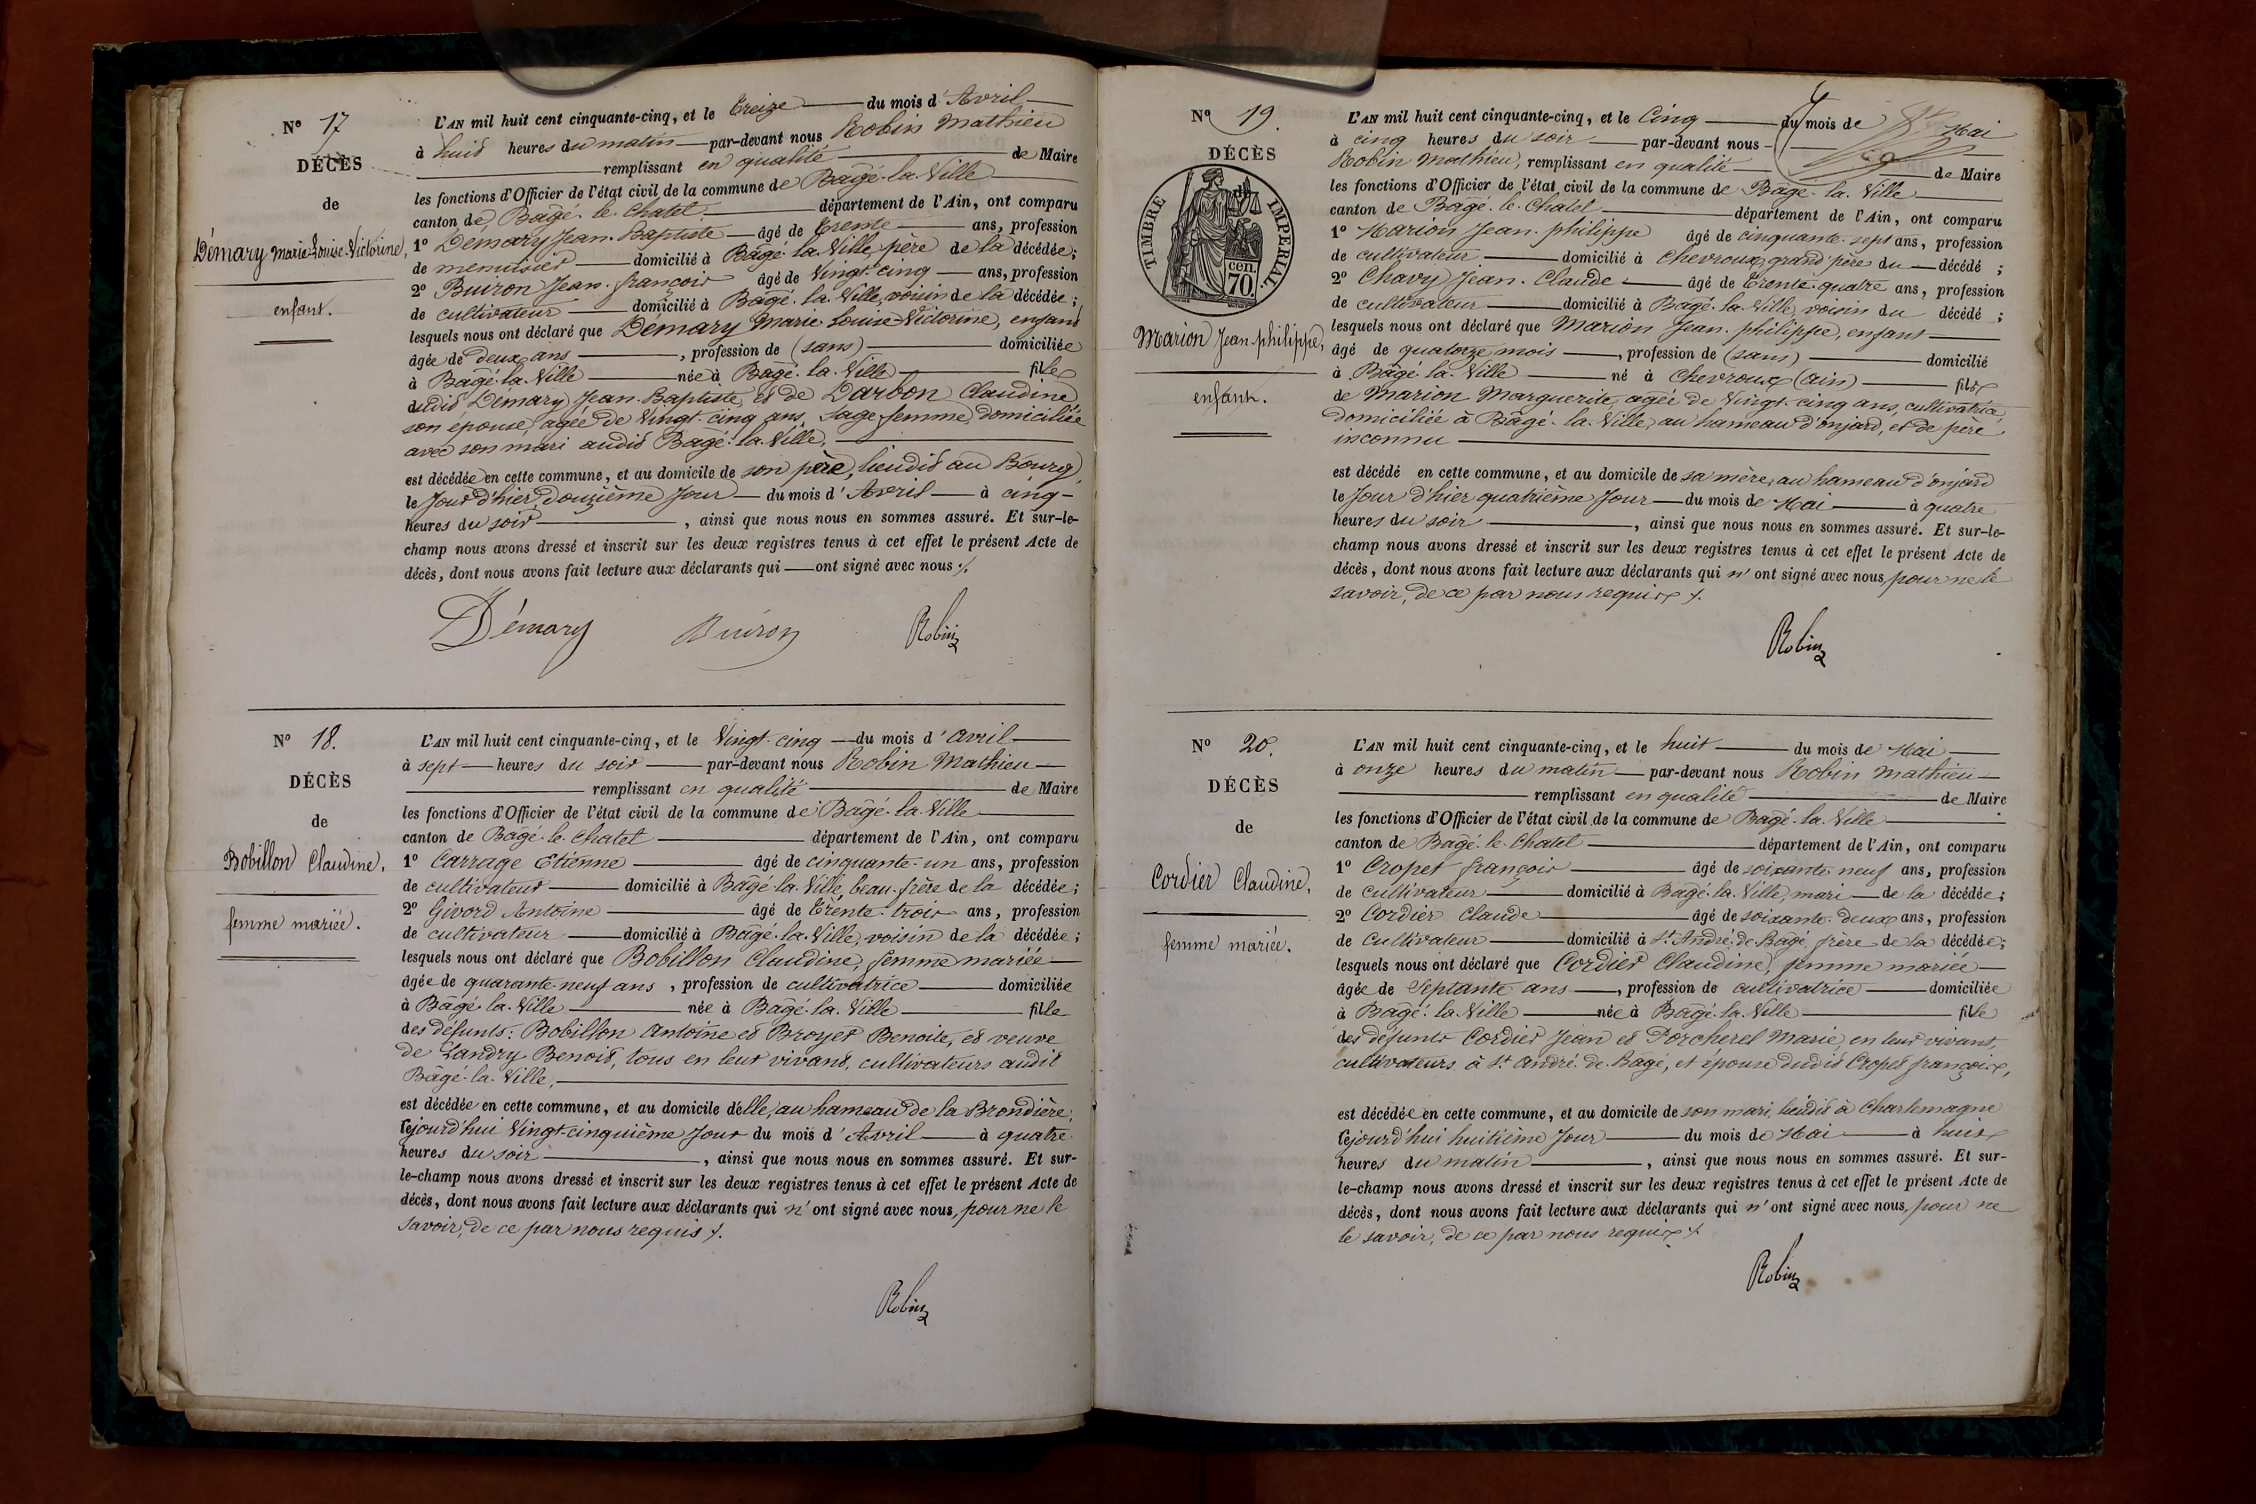 N° 17
DÉCÈS
de
Démary Marie Louise Victorine,
enfant.
L'AN mil huit cent cinquante-cinq, et le Treize du mois d'Avril
à huit heures du matin par-devant nous Robin Mathieu
remplissant en qualité de Maire
les fonctions d'Officier de l'état civil de la commune de Bâgé-la-Ville
canton de Bâgé-le-Chatel département de l'Ain, ont comparu
1° Démary Jean-Baptiste âgé de Trente ans, profession
de menuisier domicilié à Bâgé-la-Ville, père de la décédée;
2° Buiron Jean-françois âgé de Vingt-cinq ans, profession
de cultivateur domicilié à Bâgé-la-Ville, voisin de la décédée;
lesquels nous ont déclaré que Démary Marie Louise Victorine, enfant
âgée de deux ans, profession de (sans) domiciliée
à Bâgé-la-Ville née à Bâgé-la-Ville fille
dudit Démary Jean-Baptiste, et de Darbon Claudine
son épouse, agée de Vingt-cinq ans, sage-femme, domiciliée
avec son mari audit Bâgé-la-Ville,
est décédée en cette commune, et au domicile de son père, lieudit au Bourg,
le Jour d'hier, Douzième Jour du mois d'Avril à cinq
heures du soir, ainsi que nous nous en sommes assuré. Et sur-le-
champ nous avons dressé et inscrit sur les deux registres tenus à cet effet le présent Acte de
décès, dont nous avons fait lecture aux déclarants qui ont signé avec nous ./.
Démary Buiron Robin
N° 18.
DÉCÈS
de
Bobillon Claudine,
femme mariée.
L'AN mil huit cent cinquante-cinq, et le Vingt-cinq du mois d'avril
à sept heures du soir par-devant nous Robin Mathieu
remplissant en qualité de Maire
les fonctions d'Officier de l'état civil de la commune de Bâgé-la-Ville
canton de Bâgé-le-Chatel département de l'Ain, ont comparu
1° Carrage Etienne âgé de cinquante-un ans, profession
de cultivateur domicilié à Bâgé-la-Ville, beau-frère de la décédée;
2° Givord Antoine âgé de Trente-trois ans, profession
de cultivateur domicilié à Bâgé-la-Ville, voisin de la décédée;
lesquels nous ont déclaré que Bobillon Claudine, femme mariée
âgée de quarante-neuf ans, profession de cultivatrice domiciliée
à Bâgé-la-Ville née à Bâgé-la-Ville fille
des défunts: Bobillon Antoine et Broyer Benoite, et veuve
de Landry Benoit, tous en leur vivant, cultivateurs audit
Bâgé-la-Ville,
est décédée en cette commune, et au domicile d'elle, au hameau de la Brondière,
cejourd'hui Vingt-cinquième Jour du mois d'Avril à quatre
heures du soir, ainsi que nous nous en sommes assuré. Et sur-
le-champ nous avons dressé et inscrit sur les deux registres tenus à cet effet le présent Acte de
décès, dont nous avons fait lecture aux déclarants qui n'ont signé avec nous, pour ne le
savoir, de ce par nous requis ./.
Robin
N° 19.
DÉCÈS
TIMBRE IMPERIAL
cen.
70
Marion Jean-philippe,
enfant.
L'AN mil huit cent cinquante-cinq, et le Cinq du mois de Mai
à cinq heures du soir par-devant nous
Robin Mathieu, remplissant en qualité de Maire
les fonctions d'Officier de l'état civil de la commune de Bâgé-la-Ville
canton de Bâgé-le-Chatel département de l'Ain, ont comparu
1° Marion Jean-philippe âgé de cinquante-sept ans, profession
de cultivateur domicilié à Chevroux, grand'père du décédé;
2° Chavy Jean-Claude âgé de Trente-quatre ans, profession
de cultivateur domicilié à Bâgé-la-Ville, voisin du décédé;
lesquels nous ont déclaré que Marion Jean-philippe, enfant
âgé de quatorze mois, profession de (sans) domicilié
à Bâgé-la-Ville né à Chevroux (ain) fils
de Marion Marguerite, agée de Vingt-cinq ans, cultivatrice,
domiciliée à Bâgé-la-Ville, au hameau d'onjard, et de père
inconnu
est décédé en cette commune, et au domicile de sa mère, au hameau d'onjard
le Jour d'hier quatrième Jour du mois de Mai à quatre
heures du soir, ainsi que nous nous en sommes assuré. Et sur-le-
champ nous avons dressé et inscrit sur les deux registres tenus à cet effet le présent Acte de
décès, dont nous avons fait lecture aux déclarants qui n'ont signé avec nous, pour ne le
savoir, de ce par nous requis ./.
Robin
N° 20.
DÉCÈS
de
Cordier Claudine,
femme mariée.
L'AN mil huit cent cinquante-cinq, et le huit du mois de Mai
à onze heures du matin par-devant nous Robin Mathieu
remplissant en qualité de Maire
les fonctions d'Officier de l'état civil de la commune de Bagé-la-Ville
canton de Bagé-le-Chatel département de l'Ain, ont comparu
1° Cropet françois âgé de soixante-neuf ans, profession
de cultivateur domicilié à Bagé-la-Ville, mari de la décédée;
2° Cordier Claude âgé de soixante-deux ans, profession
de cultivateur domicilié à St André-de-Bâgé, frère de la décédée;
lesquels nous ont déclaré que Cordier Claudine, femme mariée
âgée de Septante ans, profession de cultivatrice domiciliée
à Bagé-la-Ville née à Bagé-la-Ville fille
des défunts Cordier Jean et Porcherel Marie, en leur vivant,
cultivateurs à St André-de-Bâgé, et épouse dudit Cropet françois,
est décédée en cette commune, et au domicile de son mari, lieudit à Charlemagne
cejourd'hui huitième Jour du mois de Mai à huit
heures du matin, ainsi que nous nous en sommes assuré. Et sur-
le-champ nous avons dressé et inscrit sur les deux registres tenus à cet effet le présent Acte de
décès, dont nous avons fait lecture aux déclarants qui n'ont signé avec nous, pour ne
le savoir, de ce par nous requis ./.
Robin